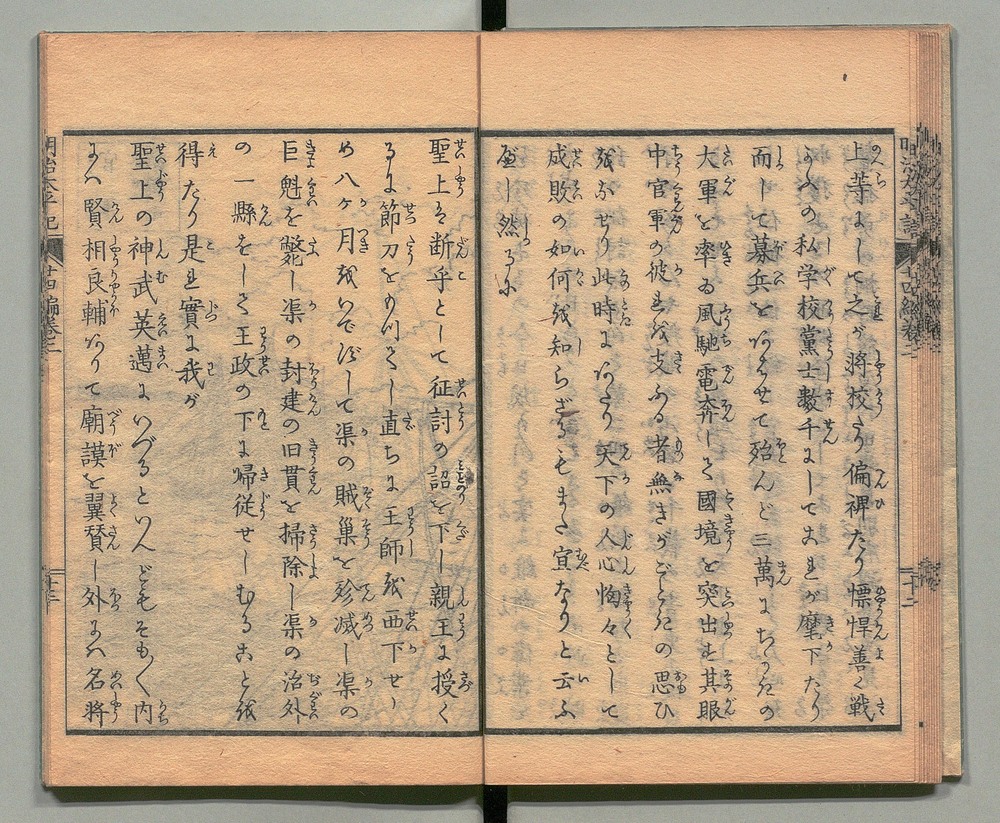 上等にして之が將校たり偏裨たり慓悍善く戦
ふ人の私学校黨士数千にしておれが麾下たり
而して募兵をあはせて殆んど三萬にちかきの
大軍を率ゐ風馳電奔して國境を突出す其眼
中官軍の彼れを支ふる者無きがごときの思ひ
を为せり此時にあたり天下の人心恟々として
成敗の如何を知らざるもまた宜なりと云ふ
べし然るに
聖上は断乎として征討の詔を下し親王に授く
るに節刀をもつてし直ちに王師を西下せし
め八ヶ月をいでずして渠の賊巣を殄滅し渠の
巨魁を斃し渠の封建の旧貫を掃除し渠の治外
の一縣をして王政の下に帰従せしむることを
得たり是れ實に我が
聖上の神武英邁にいづるといへどもそも〳〵内
には賢相良輔ありて廟謨を翼賛し外には名將
明治太平記
廿四編巻之二
十三
十二